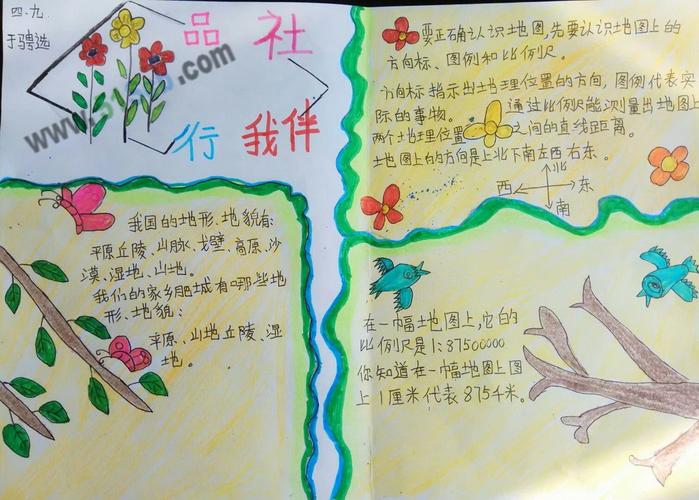 四.九
于骋选
品 社
行 我伴
要正确认识地图,先要认识地图上的
方向标、图例和比例尺。
方向标指示出地理位置的方向,图例代表实
际的事物。 通过比例尺能测量出地图上
两个地理位置 之间的直线距离。
地图上的方向是上北下南左西右东。
北
西 东
南
我国的地形、地貌有:
平原丘陵、山脉、戈壁、高原、沙
漠、湿地、山地。
我们的家乡肥城有哪些地
形、地貌:
平原、山地丘陵、湿
地。
在一幅地图上,它的
比例尺是1:37500000
你知道在一幅地图上图
上1厘米代表8754米。